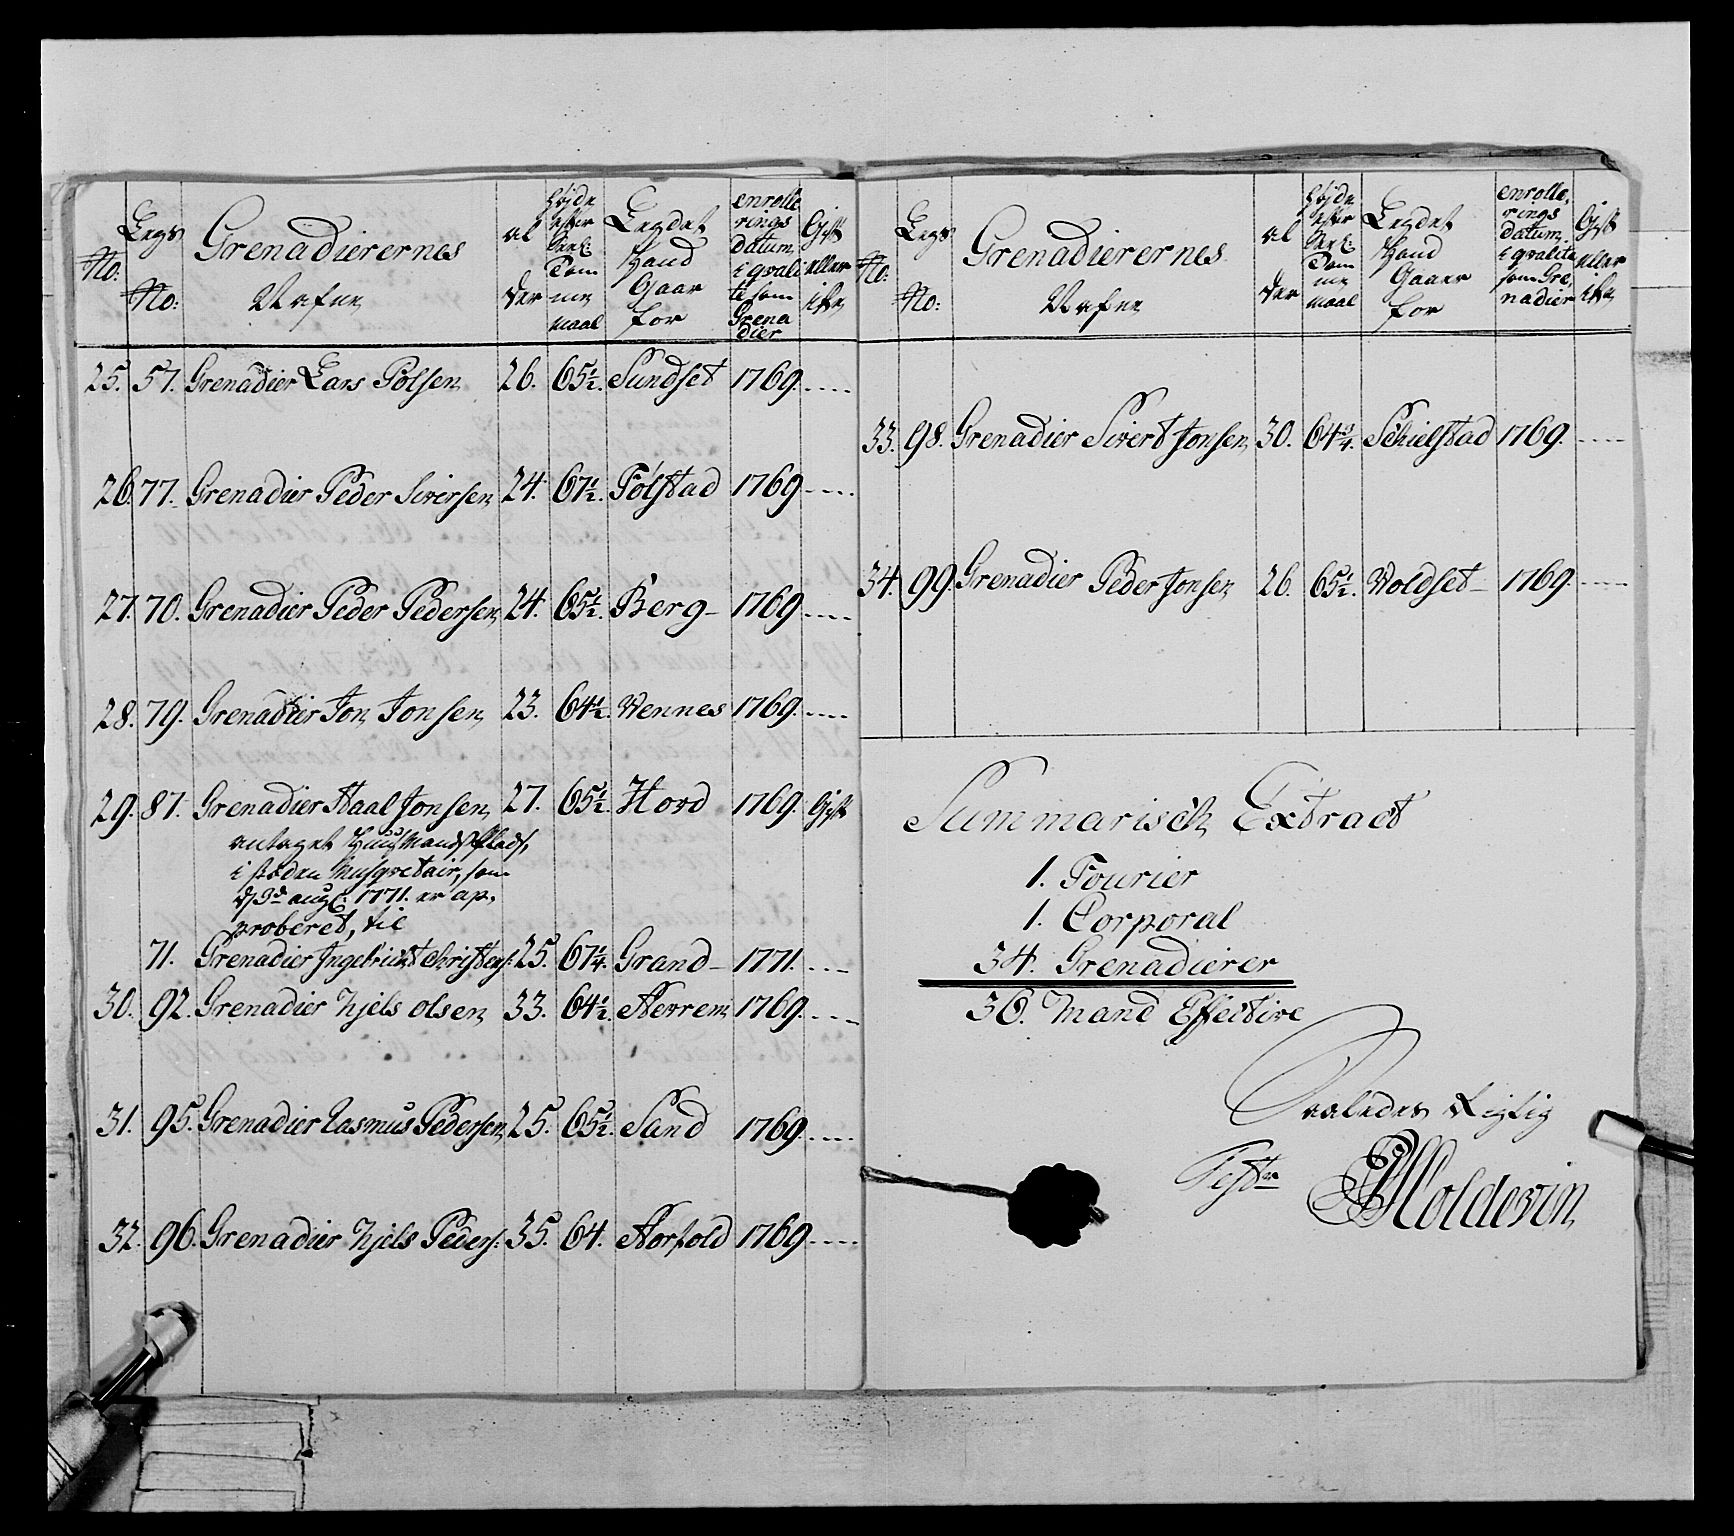 No: Legs No: Grenadierernes Nafne al der Høide efter Tom me maal Legdet Hand Gaar for enrolle rings datum i qvali te som Grena dier Gift eller ikke
25. 57. Grenadier Lars Polsen 26. 65½. Sundset 1769. ----
26. 77. Grenadier Peder Siversen 24. 67½. Folstad 1769 ----
27. 70. Grenadier Peder Pedersen 24. 65½. Berg 1769 ----
28. 79. Grenadier Jon Jonsen 23. 64½. Vennes 1769. ----
29. 87. Grenadier Staal Jonsen 27. 65½ Hovd 1769. Gift
antaget Huusmands Plads,
i steden Musqvetair, som
d 3d aug: 1771. er ap,
proberet, til
71. Grenadier Ingebricht Christens: 25. 67¼. Grand 1771. ---
30. 92. Grenadier Njels Olsen 33. 64½. Nerrem 1769. ----
31. 95. Grenadier Rasmus Pedersen 25. 65½. Sand 1769 ----
32. 96. Grenadier Njels Peders: 35. 64. Norfold 1769. ----
No: Legs No: Grenadierernes Nafne al der Høide efter Tom me maal Legdet Hand Gaaer for enrolle, rings datum, i qvalite som Gre, nadier Gift eller ikke
33. 98. Grenadier Sivert Jonsen 30. 64¾. Schielstad 1769. ----
34. 99. Grenadier Peder Jonsen 26. 65½. Voldset 1769. ----
Summarisch Extract
1. Fourier
1. Corporal
34. Grenadierer
36. Mand Effective
Saaledes Rigtig
Test
Holdevin